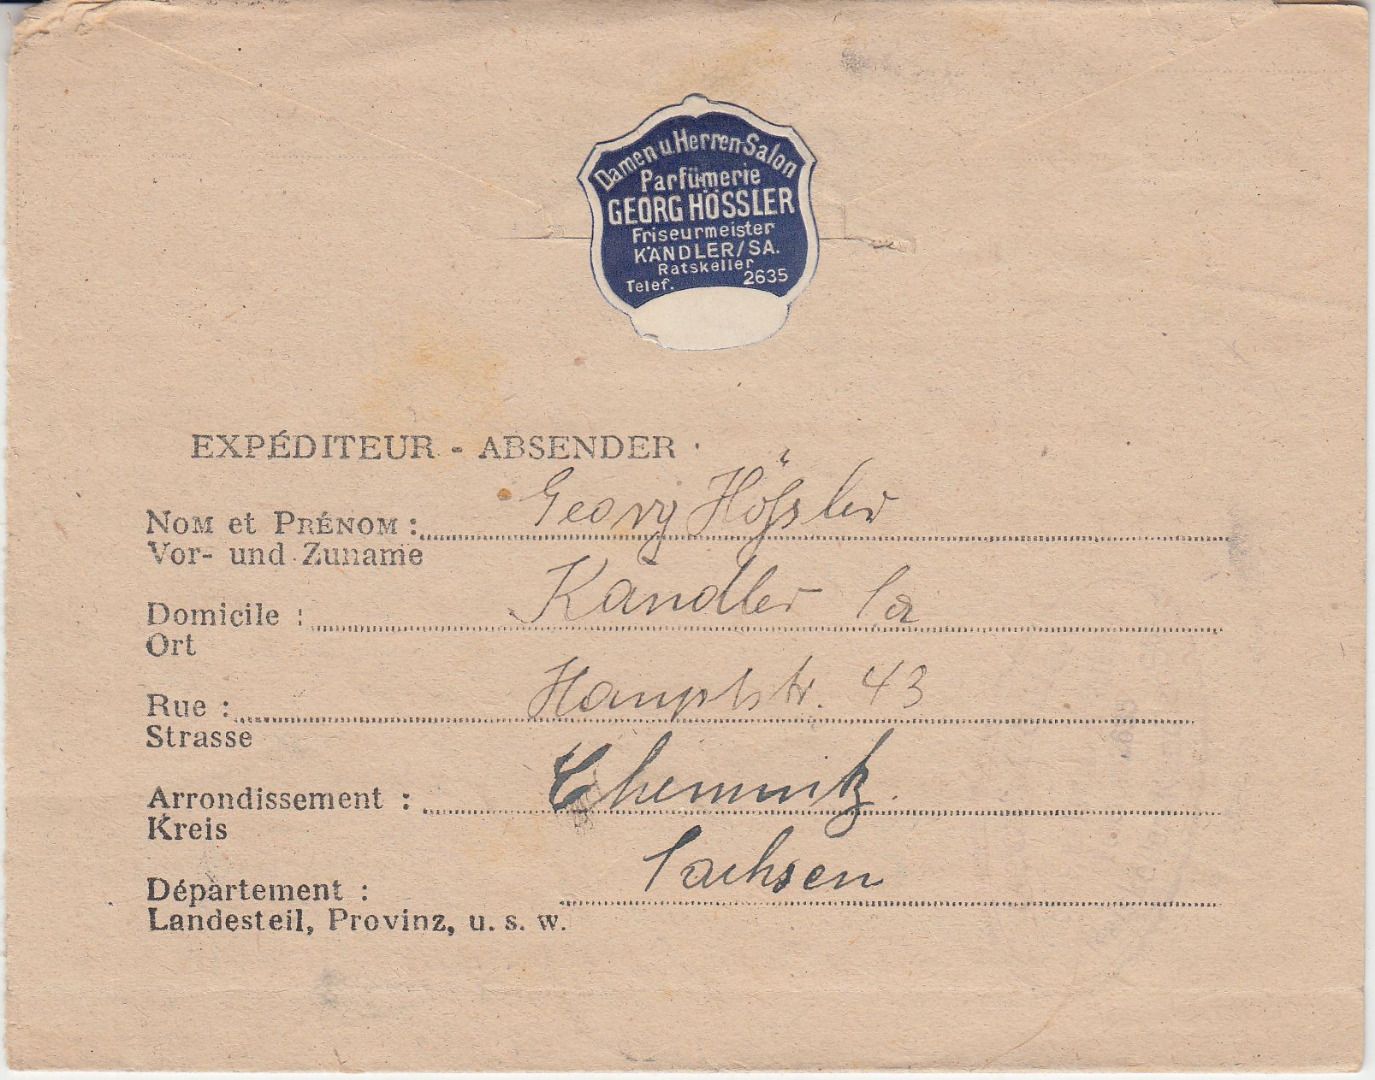 Damen u. Herren-Salon
Parfümerie
GEORG HÖSSLER
Friseurmeister
KÄNDLER/SA.
Ratskeller
Telef. 2635
EXPÉDITEUR - ABSENDER
NOM et PRÉNOM : Georg Hößler
Vor- und Zuname
Domicile : Kändler Sa
Ort
Rue : Hauptstr. 43
Strasse
Arrondissement : Chemnitz.
Kreis
Département : Sachsen
Landesteil, Provinz, u. s. w.